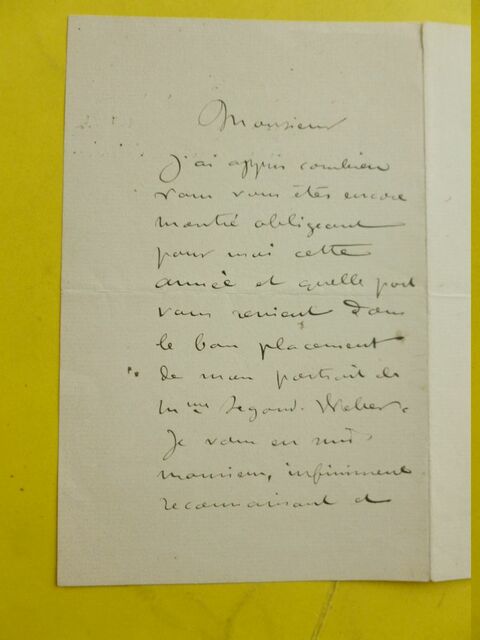 Monsieur
J'ai appris combien
vous vous êtes encore
montré obligeant
pour moi cette
année et quelle part
vous revient dans
le bon placement
de mon portrait de
Mme Segond-Weber.
Je vous en suis,
monsieur, infiniment
reconnaissant et